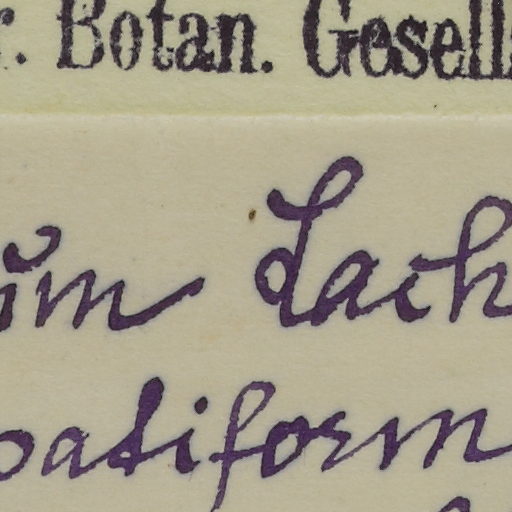 r. Botan. Gesells
um Lach
patiform